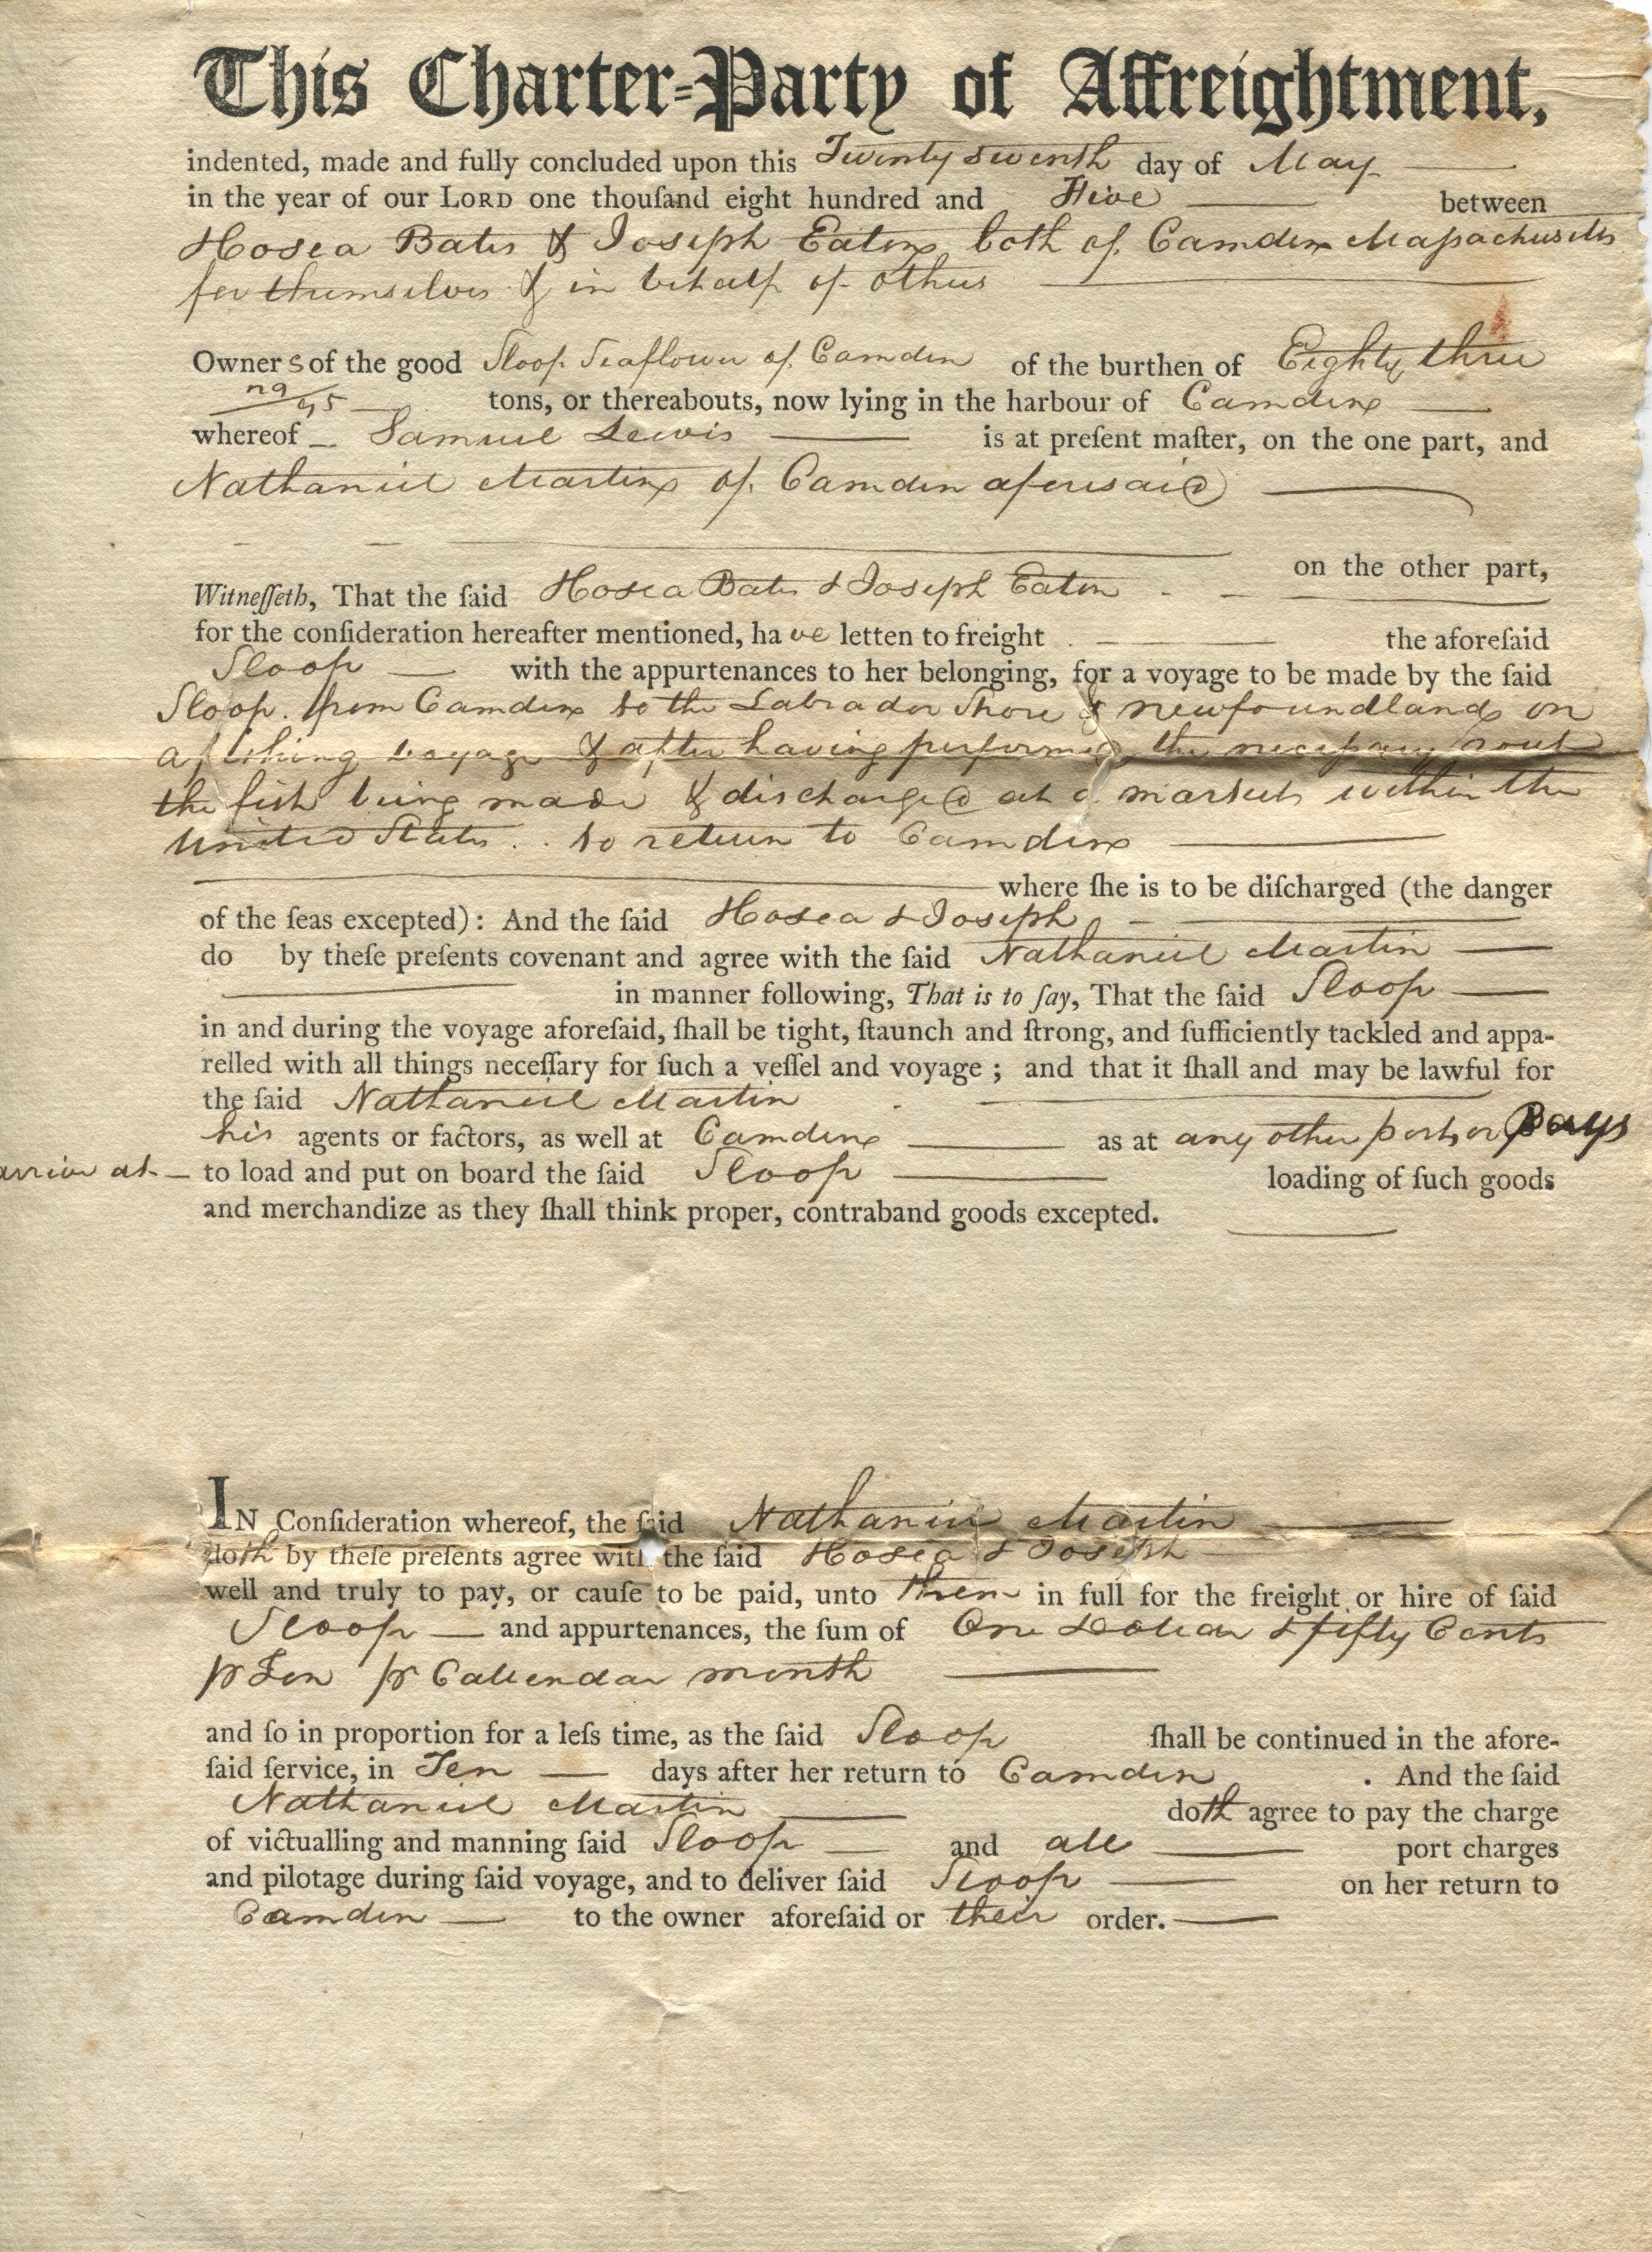 This Charter-Party of Affreightment,
indented, made and fully concluded upon this Twenty seventh day of May
in the year of our LORD one thouſand eight hundred and Five between
Hosea Bates & Joseph Eaton both of Camden Maſsachusetts
for themselves & in behalf of others
Owners of the good Sloop Seaflower of Camden of the burthen of Eighty three
/95 tons, or thereabouts, now lying in the harbour of Camden
whereof Samuel Lewis is at preſent maſter, on the one part, and
Nathaniel Martin of Camden aforesaid
on the other part,
Witneſſeth, That the ſaid Hosea Bates & Joseph Eaton
for the conſideration hereafter mentioned, have letten to freight the aforeſaid
Sloop with the appurtenances to her belonging, for a voyage to be made by the ſaid
Sloop. from Camden to the Labrador Shore & newfoundland on
a fishing voyage & after having performed the neceſsary rout
the fish being made & discharged at a market within the
United States to return to Camden
where ſhe is to be diſcharged (the danger
of the ſeas excepted): And the ſaid Hosea & Joseph
do by theſe preſents covenant and agree with the ſaid Nathaniel Martin
in manner following, That is to ſay, That the ſaid Sloop
in and during the voyage aforeſaid, ſhall be tight, ſtaunch and ſtrong, and ſufficiently tackled and appa-
relled with all things neceſſary for ſuch a veſſel and voyage ; and that it ſhall and may be lawful for
the ſaid Nathaniel Martin
his agents or factors, as well at Camden as at any other port or Bays
arrive at to load and put on board the ſaid Sloop loading of ſuch goods
and merchandize as they ſhall think proper, contraband goods excepted.
IN Conſideration whereof, the ſaid Nathaniel Martin
doth by theſe preſents agree with the ſaid Hosea & Joseph
well and truly to pay, or cauſe to be paid, unto them in full for the freight or hire of ſaid
Sloop and appurtenances, the ſum of One Dollar & fifty Cents
pr Ton pr Callendar month
and ſo in proportion for a leſs time, as the ſaid Sloop ſhall be continued in the afore-
ſaid ſervice, in Ten days after her return to Camden . And the ſaid
Nathaniel Martin doth agree to pay the charge
of victualling and manning ſaid Sloop and all port charges
and pilotage during ſaid voyage, and to deliver ſaid Sloop on her return to
Camden to the owner aforeſaid or their order.